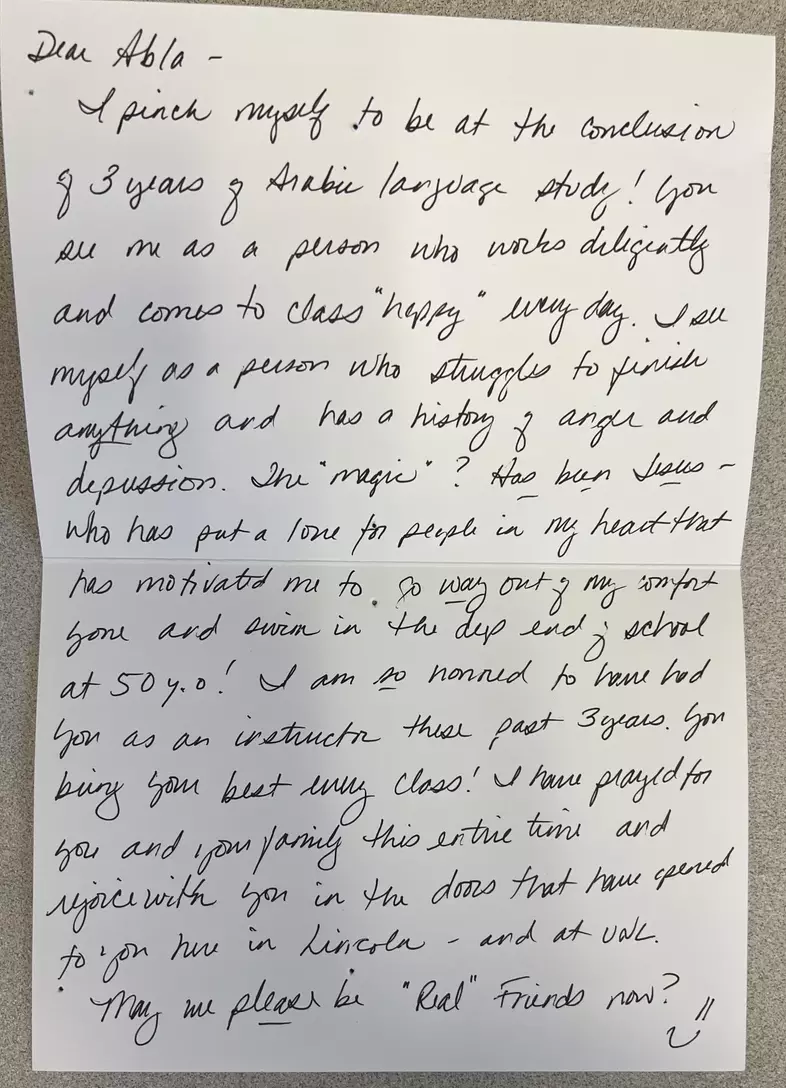 Dear Abla -
I pinch myself to be at the conclusion
of 3 years of Arabic language study! You
see me as a person who works diligently
and comes to class "happy" every day. I see
myself as a person who struggles to finish
anything and has a history of anger and
depression. The "magic"? Has been Jesus -
who has put a love for people in my heart that
has motivated me to go way out of my comfort
zone and swim in the deep end of school
at 50 y.o! I am so honored to have had
you as an instructor these past 3 years. You
bring your best every class! I have prayed for
you and your family this entire time and
rejoice with you in the doors that have opened
to you here in Lincoln - and at UNL.
May we please be "Real" Friends now?